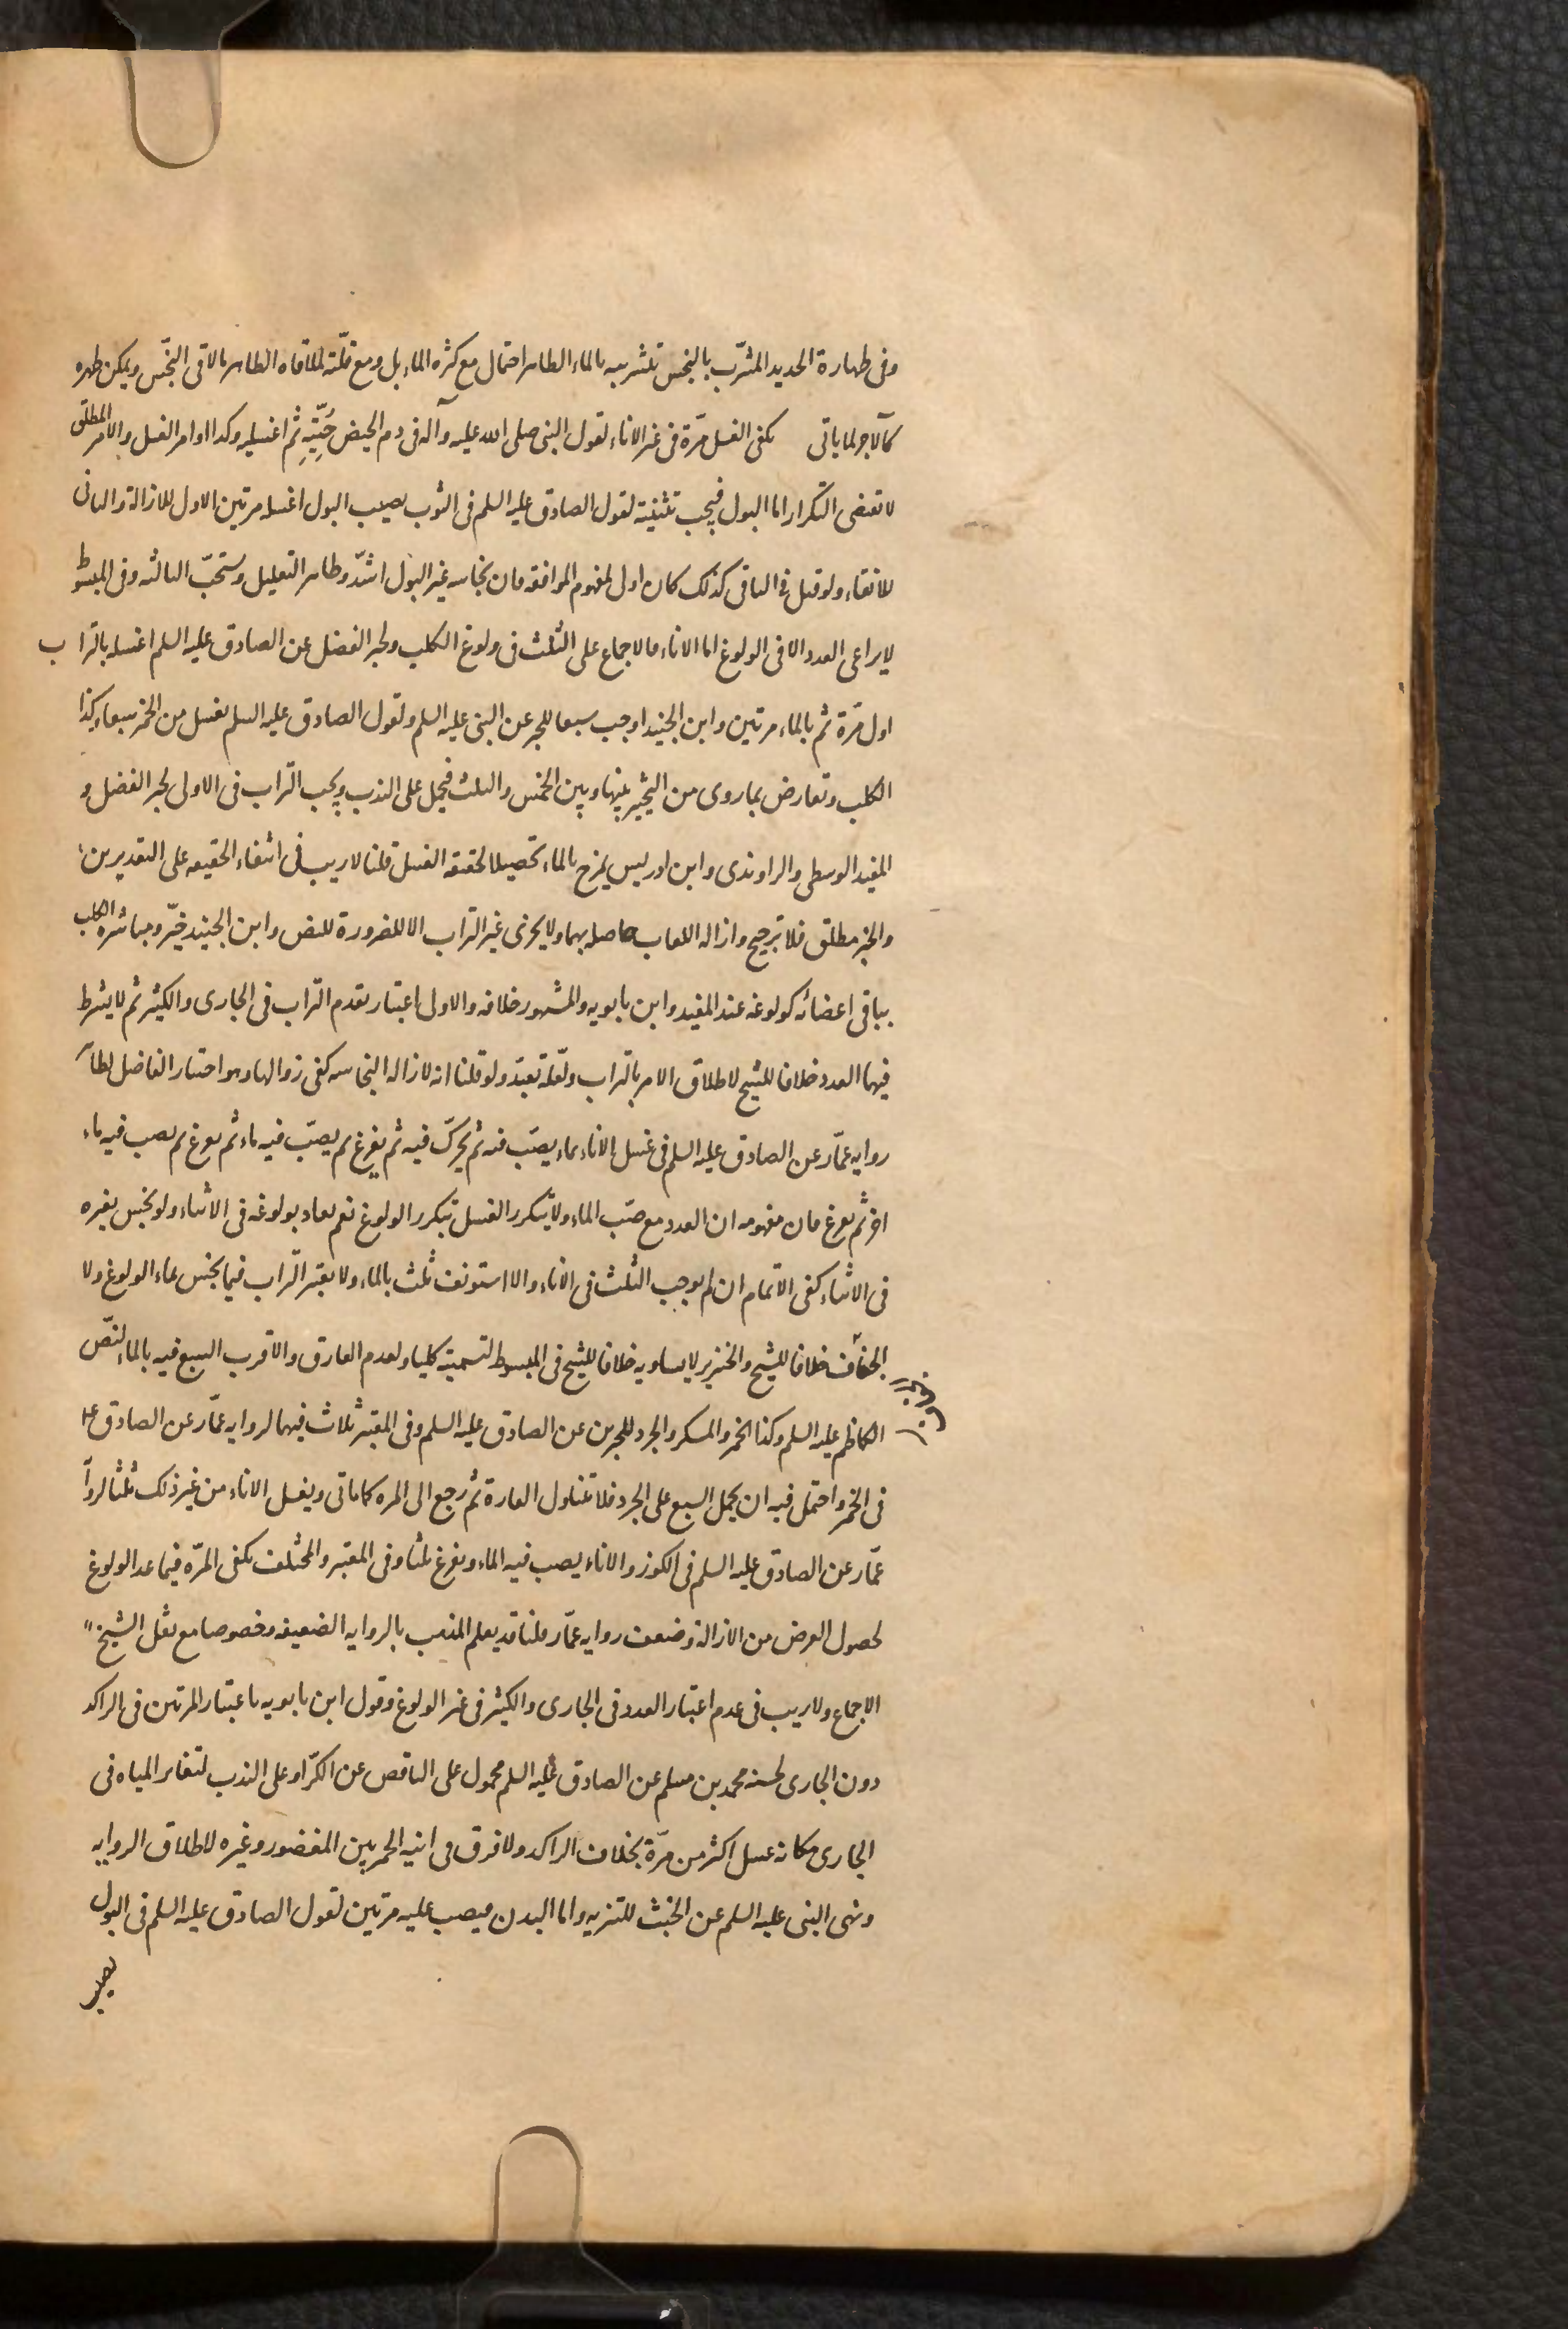 وفى طهارة الحديد المشرّب بالنجس بتشريبه بالماء الطاهر احتمال مع كثره الماء بل ومع قلّته لملاقاه الطاهر ما لاقى النجس ويمكن طهره
كالآجر لما ياتى يكفى الغسل مرّة فى غير الاناء لقول النبى صلى الله عليه وآله فى دم الحيض حُتّيهِ ثم اغسليه وكذا اوامر الغسل والامر المطلق
لا تقتضى التكرار اما البول فيجب تثنيته لقول الصادق عليه السلم فى الثوب يصيب البول اغسله مرتين الاول للازالة والثانى
للانقاء ولو قيل فى الباقى كذلك كان اولى لمفهوم الموافقه فان نجاسه غير البول اشدّ وظاهر التعليل ويستحبّ الثالثه وفى المبسوط
لا يراعى العدد الا فى الولوغ اما الاناء فالاجماع على الثلث فى ولوغ الكلب ولخبر الفضل عن الصادق عليه السلم اغسله بالتراب
اول مرّة ثم بالماء مرتين وابن الجنيد اوجب سبعا للخبر عن النبى عليه السلم ولقول الصادق عليه السلم يغسل من الخمر سبعا وكذا
الكلب وتعارض بما روى من التخيير بينها وبين الخمس والثلث فيحمل على الندب ويجب التراب فى الاولى لخبر الفضل و
المفيد الوسطى والراوندى وابن ادريس يمزج بالماء تحصيلا لحقيقة الغسل قلنا لا ريب فى انتفاء الحقيقه على التقديرين
والخبر مطلق فلا ترجيح وازاله اللعاب حاصله بهما ولا يجزى غير التراب الا للضرورة للنص وابن الجنيد خيّر ومباشره الكلب
بباقى اعضائه كولوغه عند المفيد وابن بابويه والمشهور خلافه والاولى اعتبار تقدم التراب فى الجارى والكثير ثم لا يشترط
فيهما العدد خلافا للشيخ لاطلاق الامر بالتراب ولعلّه تعبّد ولو قلنا انه لازاله النجاسه كفى زوالها وهو اختيار الفاضل لظاهر
روايه عمّار عن الصادق عليه السلم فى غسل الاناء بماء يصبّ فيه ثم يحرّك فيه ثم يفرغ ثم يصبّ فيه ماء ثم يفرغ ثم يصب فيه ماء
اخر ثم يفرغ فان مفهومه ان العدد مع صبّ الماء ولا يتكرر الغسل بتكرر الولوغ نعم يعاد بولوغه فى الاثناء ولو نجس بغيره
فى الاثناء كفى الاتمام ان لم يوجب الثلث فى الاناء والا استونف ثلث بالماء ولا يعتبر التراب فيما نجس بماء الولوغ ولا
الجفاف خلافا للشيخ والخنزير لا يساويه خلافا للشيخ فى المبسوط لتسميته كلبا ولعدم الفارق والاقرب السبع فيه بالماء لنصّ
الكاظم عليه السلم وكذا الخمر والمسكر والجرذ للخبرين عن الصادق عليه السلم وفى المعتبر ثلاث فيهما لروايه عمّار عن الصادق ع
فى الخمر واحتمل فيه ان يحمل السبع على الجرذ فلا تتناول الفارة ثم رجع الى المره كما ياتى ويغسل الاناء من غير ذلك ثلثا لروايه
عمّار عن الصادق عليه السلم فى الكوز والاناء يصب فيه الماء ويفرغ ثلثا وفى المعتبر والمختلف يكفى المرّه فيما عدا الولوغ
لحصول الغرض من الازالة وضعف روايه عمّار قلنا قد يعلم المذهب بالروايه الضعيفه وخصوصا مع نقل الشيخ
الاجماع ولا ريب فى عدم اعتبار العدد فى الجارى والكثير فى غير الولوغ وقول ابن بابويه باعتبار المرتين فى الراكد
دون الجارى لحسنه محمد بن مسلم عن الصادق عليه السلم محمول على الناقص عن الكرّ او على الندب لتغاير المياه فى
الجارى فكانه غسل اكثر من مرّة بخلاف الراكد ولا فرق فى انيه الخمر بين المغضور وغيره لاطلاق الروايه
ونهى النبى عليه السلم عن الخشب للتنزيه واما البدن فيصب عليه مرتين لقول الصادق عليه السلم فى البول
يصيب